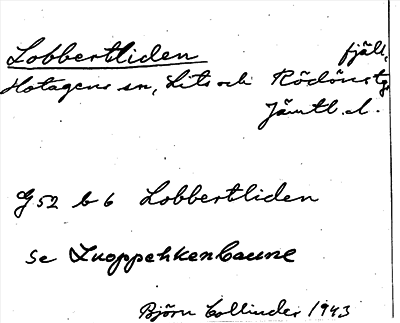 Lobbertliden fjäll,
Hotagens sn, Lits och Rödöns tg
Jämtl. l.
G 52 b 6 Lobbertliden
se Luoppehkenbaune
Björn Collinder 1943